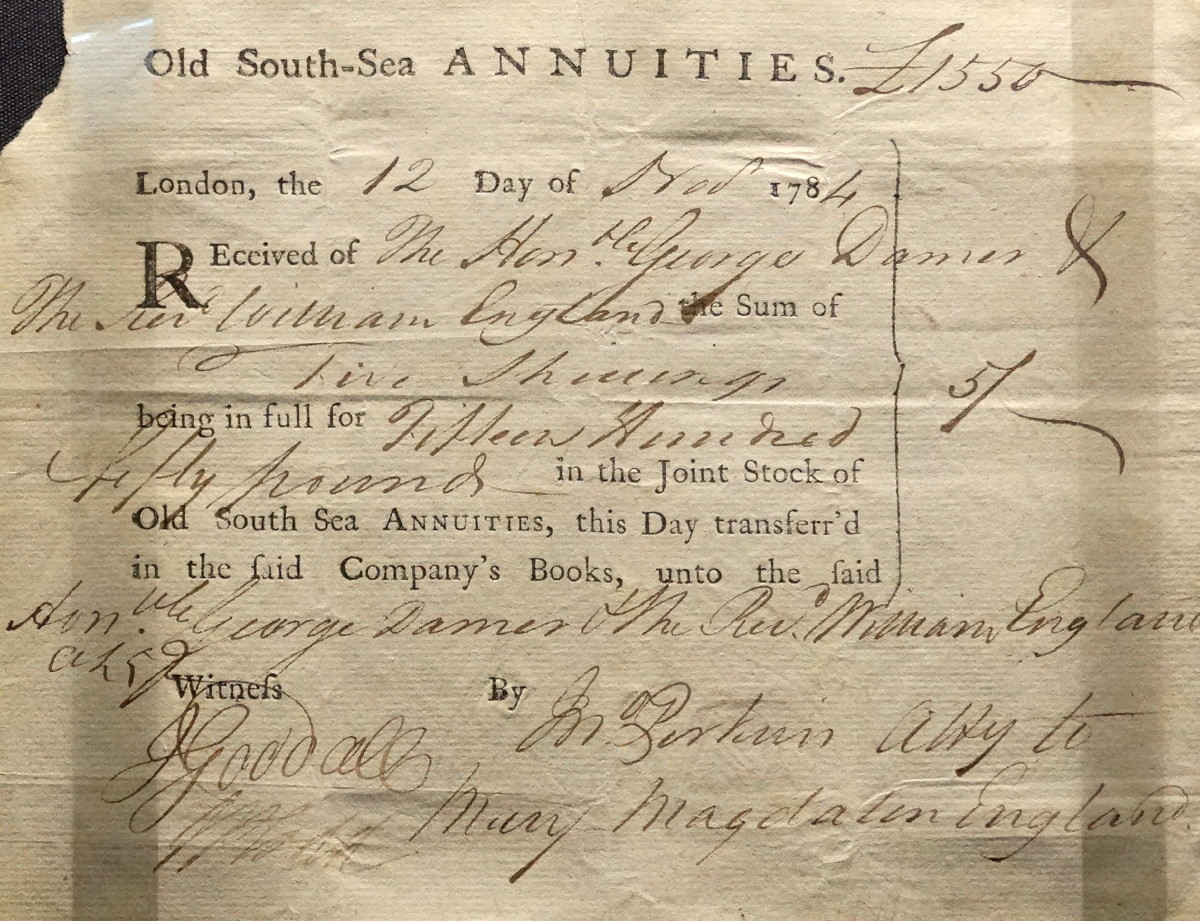 Old South-Sea ANNUITIES. £1550
London, the 12 Day of Nov 1784
REceived of The Honble. George Damer &
The Revd William England the Sum of
Five Shillings 5/
being in full for Fifteen Hundred
fifty pounds in the Joint Stock of
Old South Sea ANNUITIES, this Day transferr'd
in the ſaid Company's Books, unto the ſaid
Honble. George Damer & The Revd. William England
Witneſs By Jno. Perkin Atty to
J Goodall
Mary Magdalen England